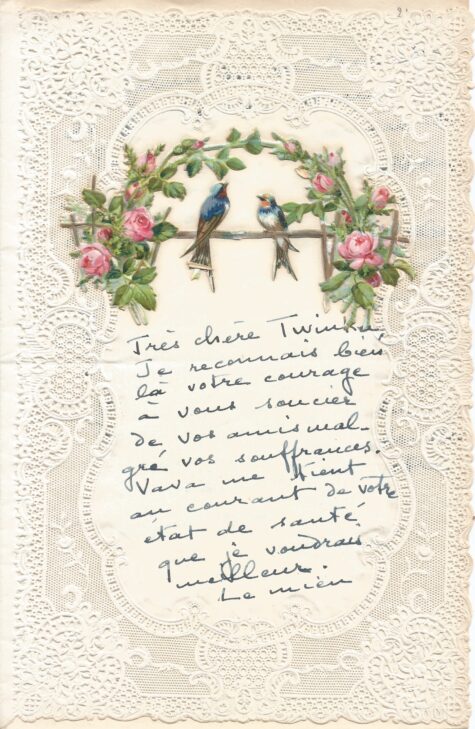 2
Très chère Twinkie,
Je reconnais bien
là votre courage
à vous soucier
de vos amis mal-
gré vos souffrances.
Vava me tient
au courant de votre
état de santé
que je voudrais
meilleur.
Le mien